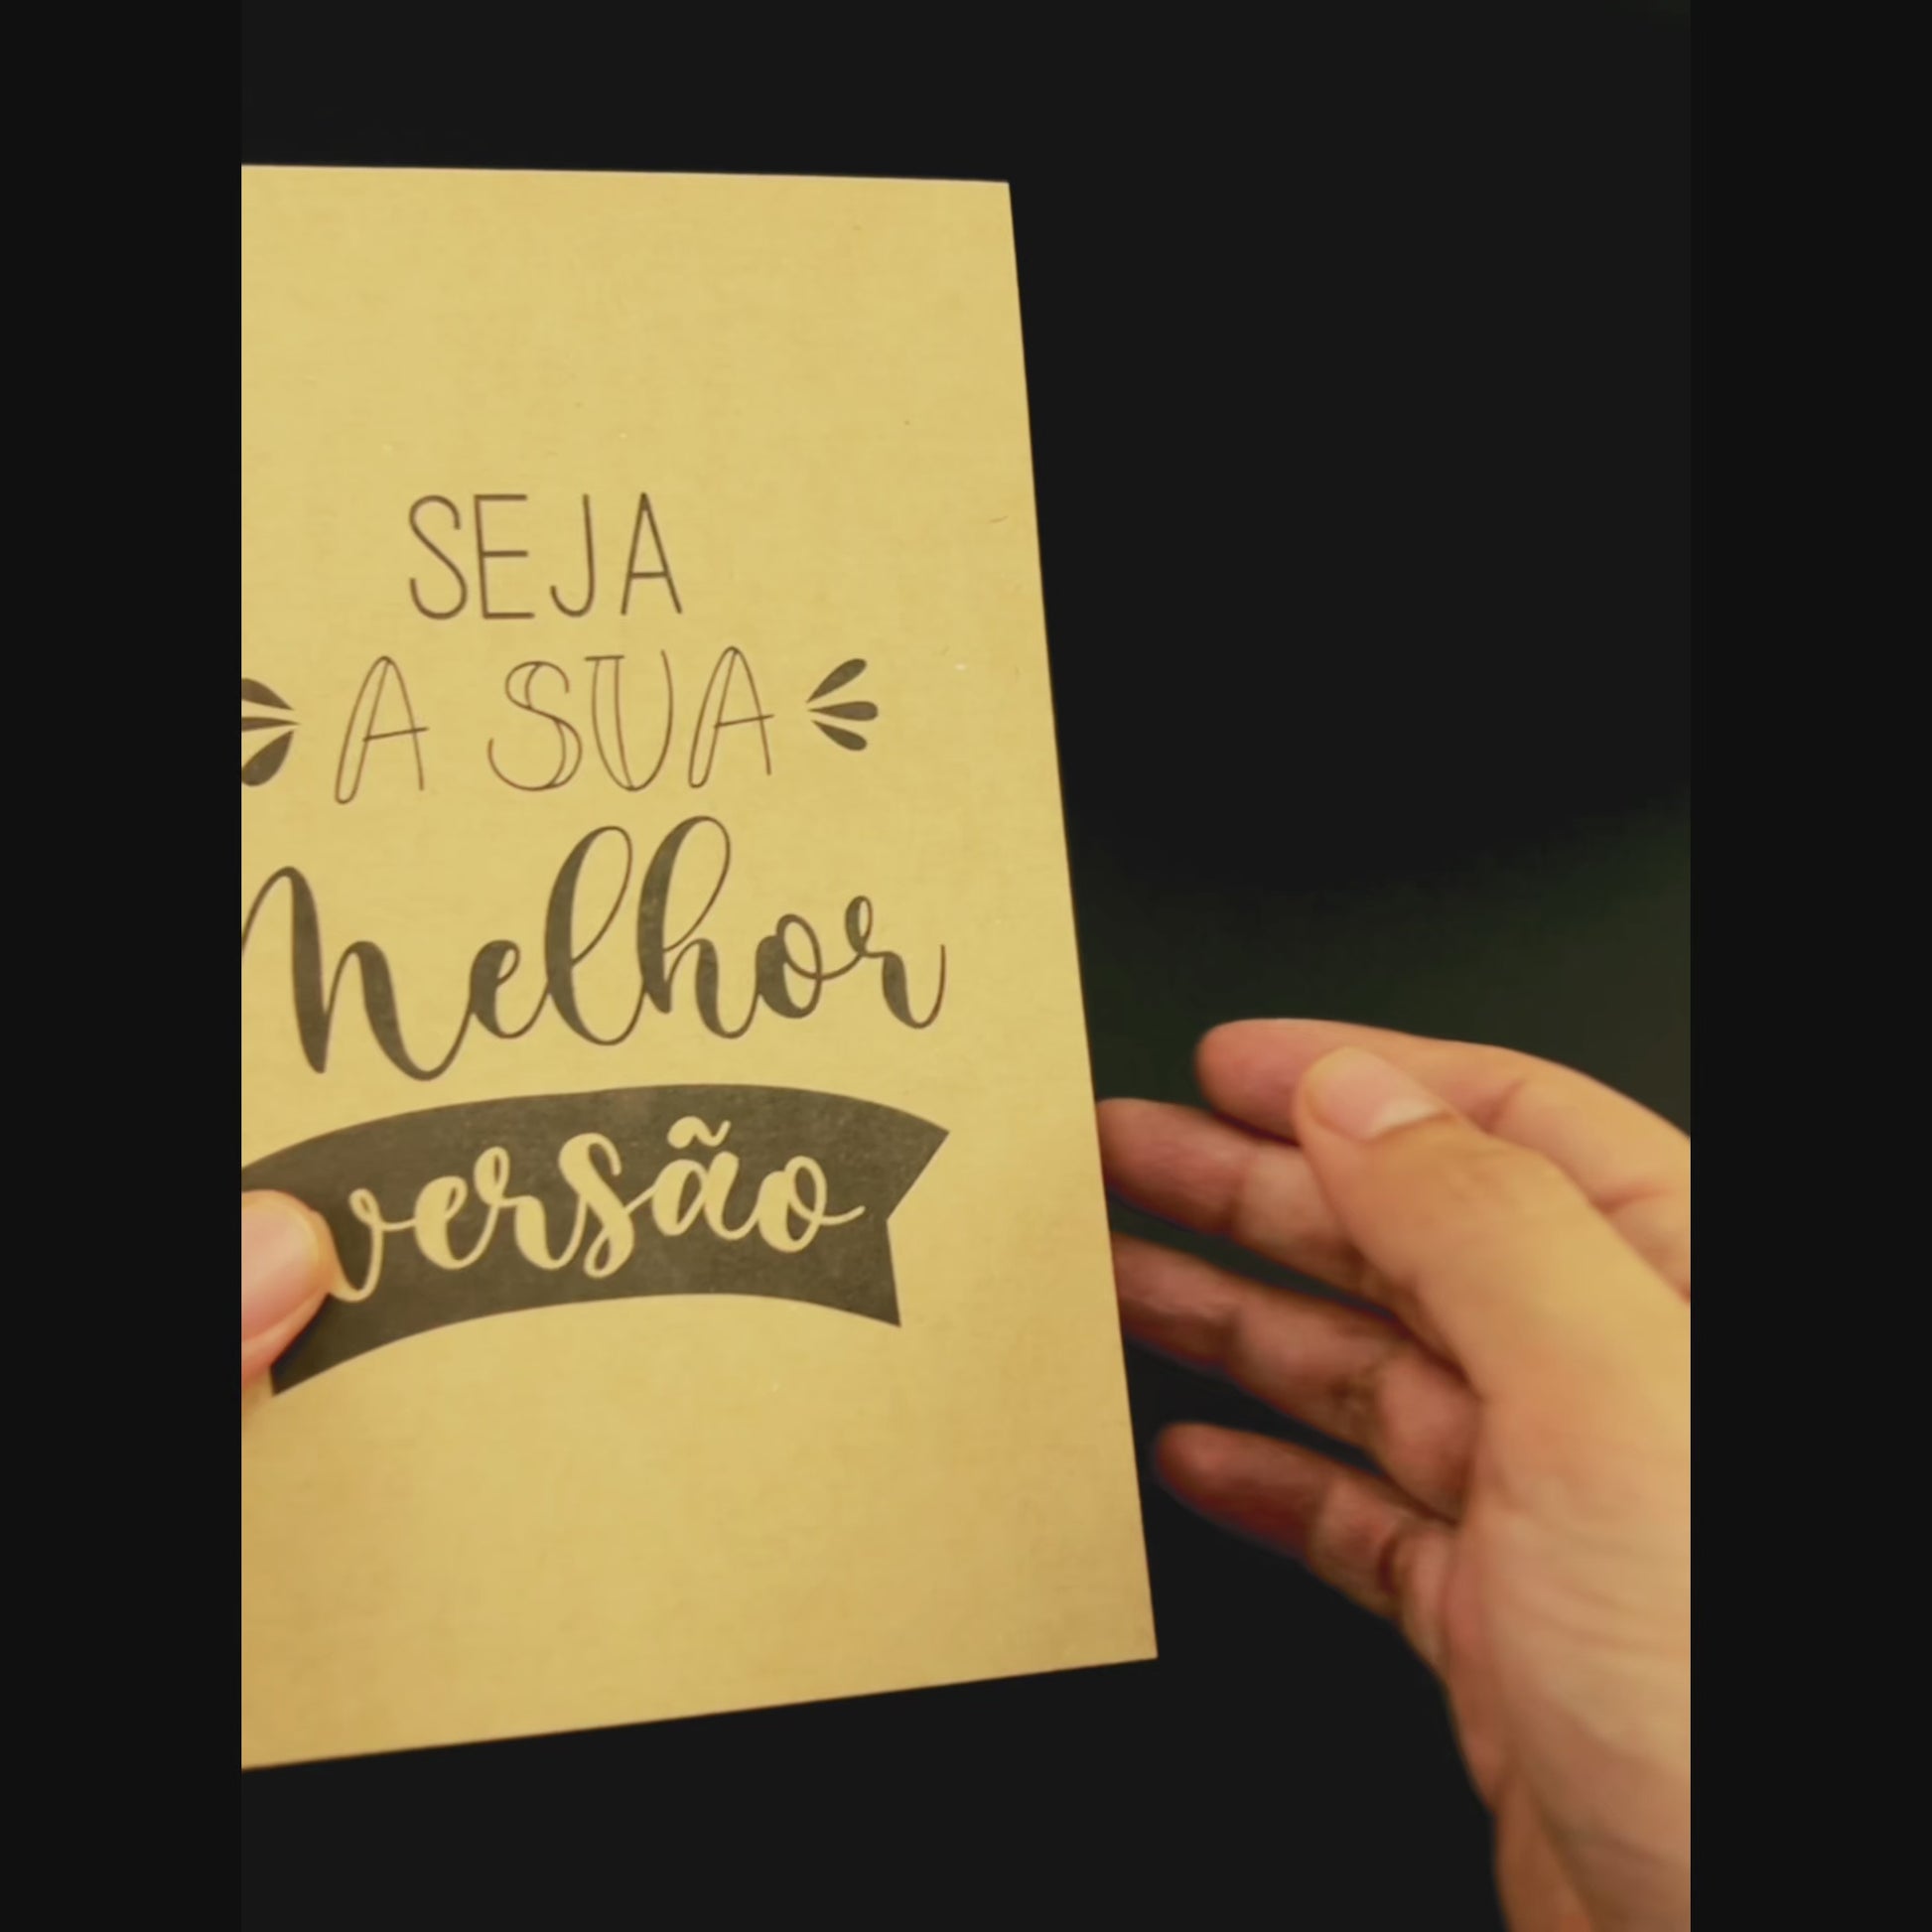 SEJA
A SUA
Melhor
versão